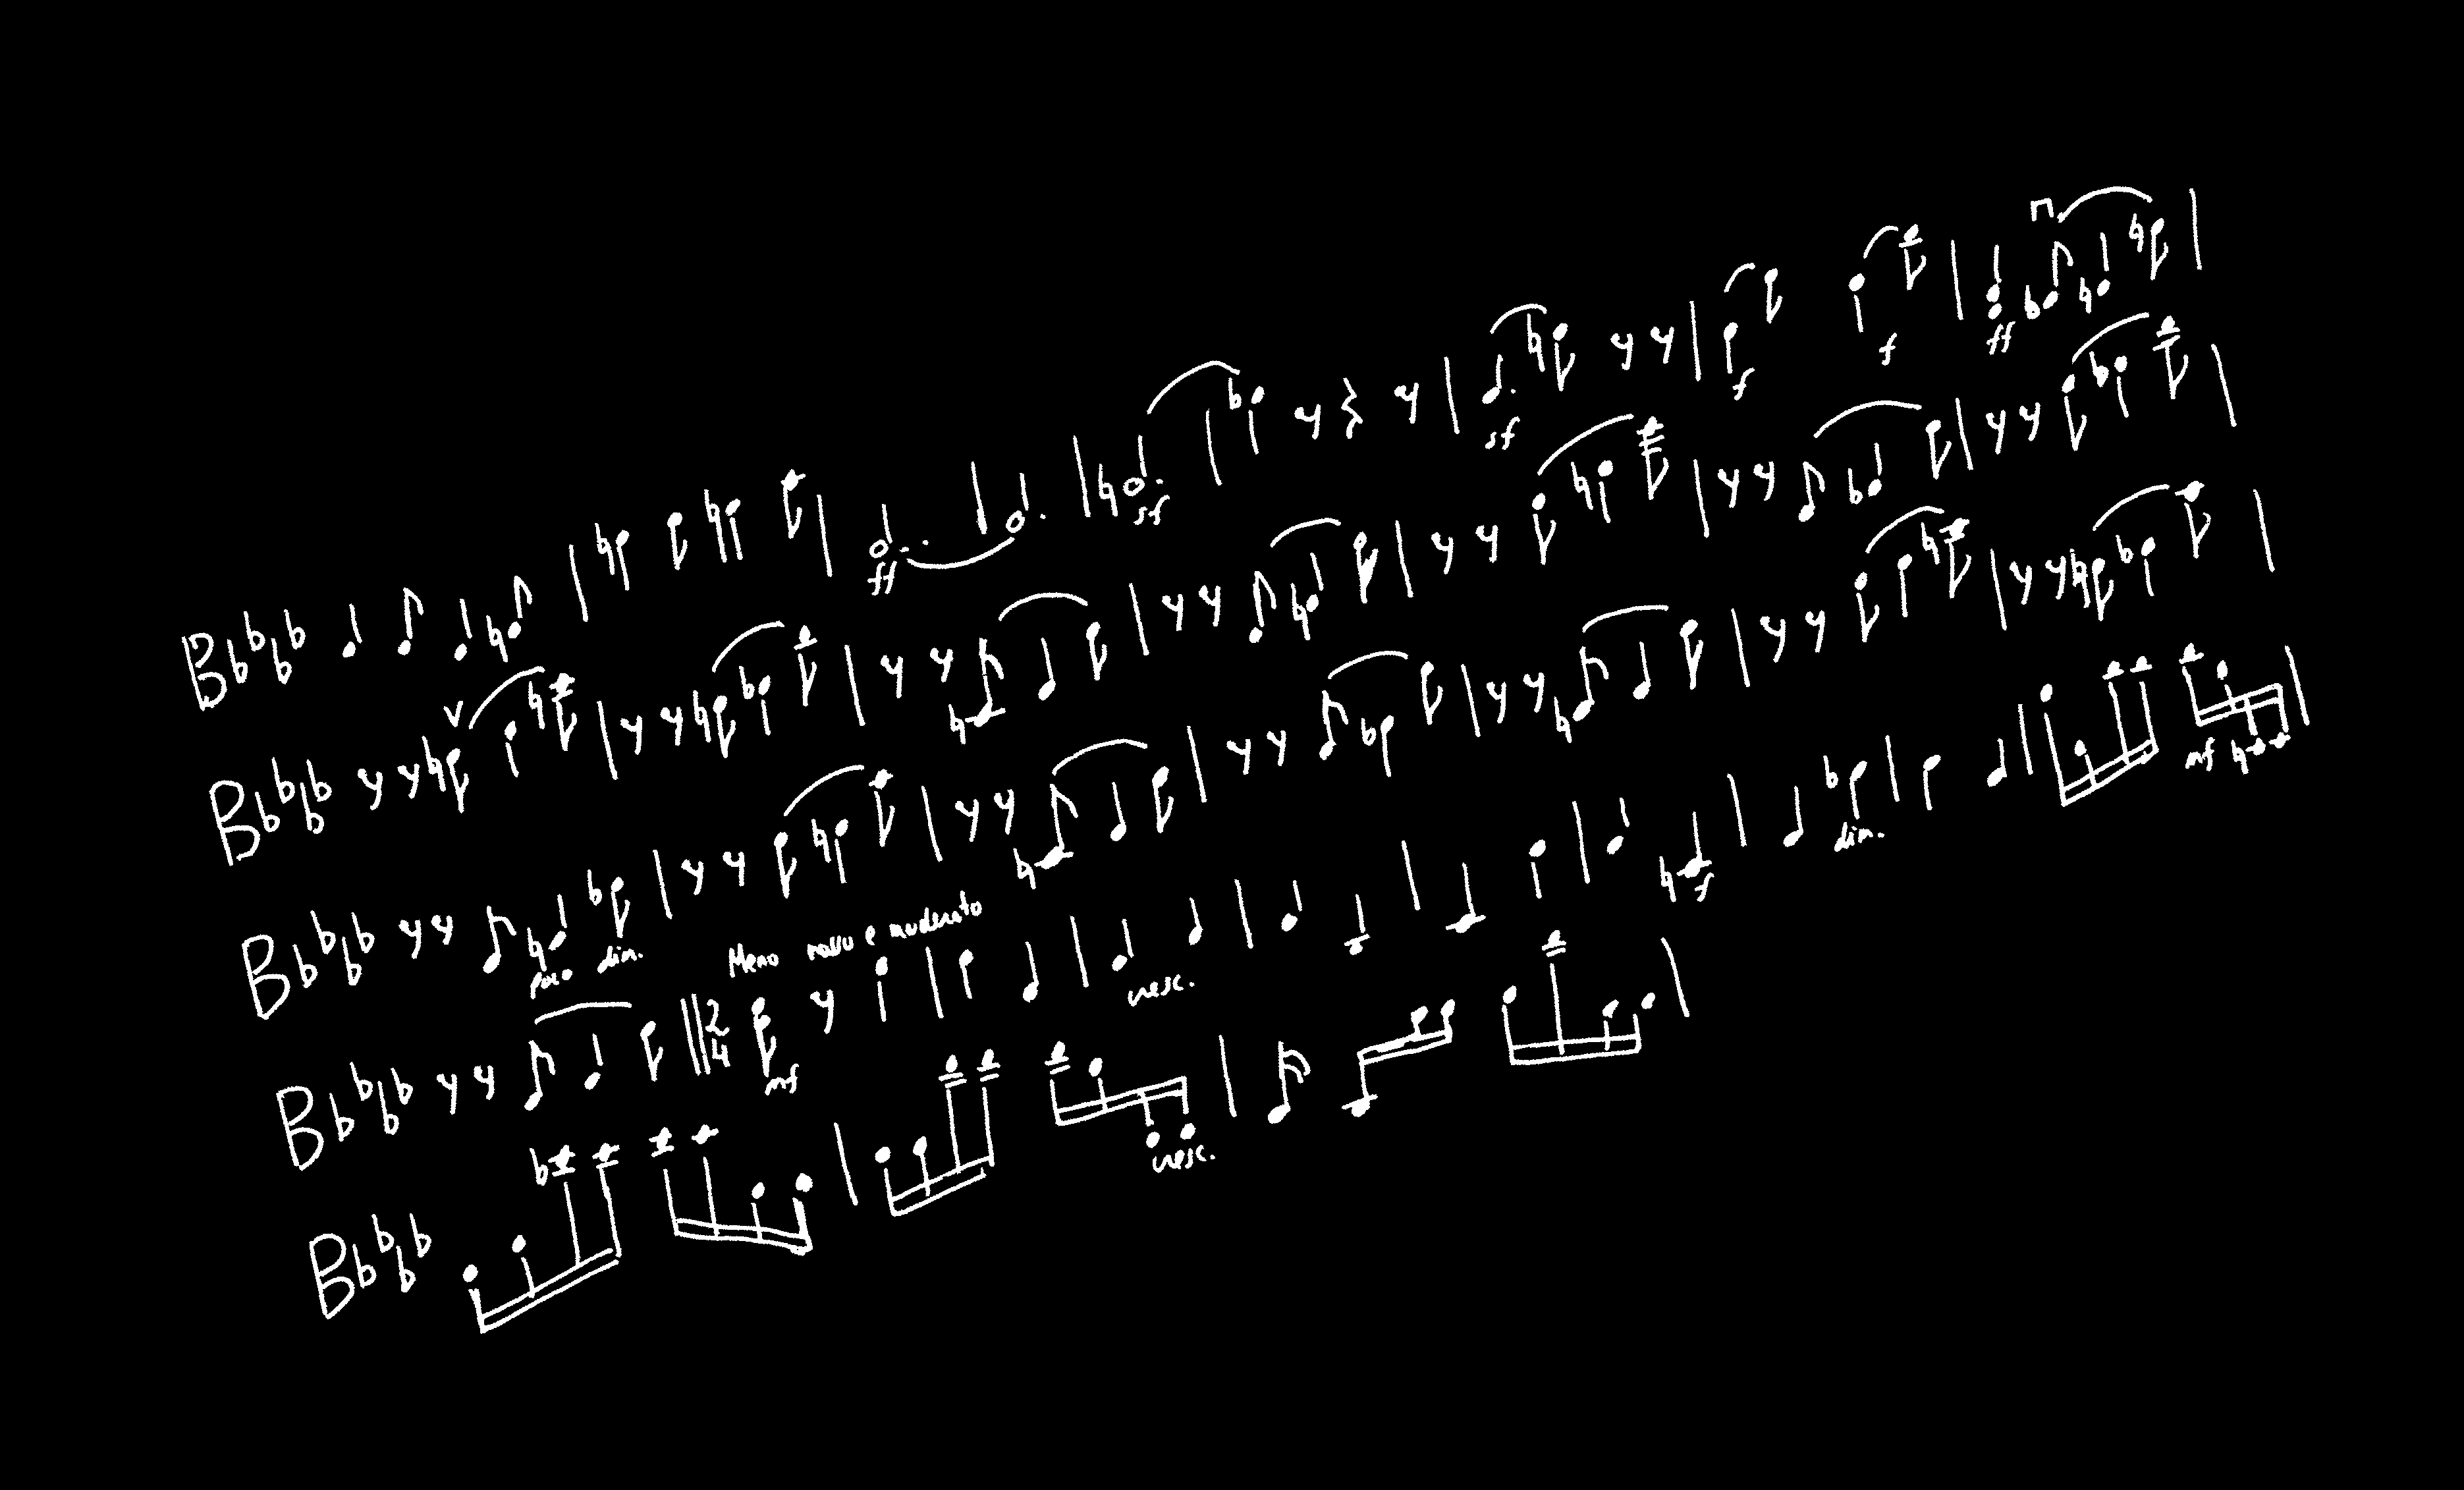 ff sf sf f f ff
poco dim.
Meno mosso e moderato
mf cresc. f dim. mf
cresc.
2
4